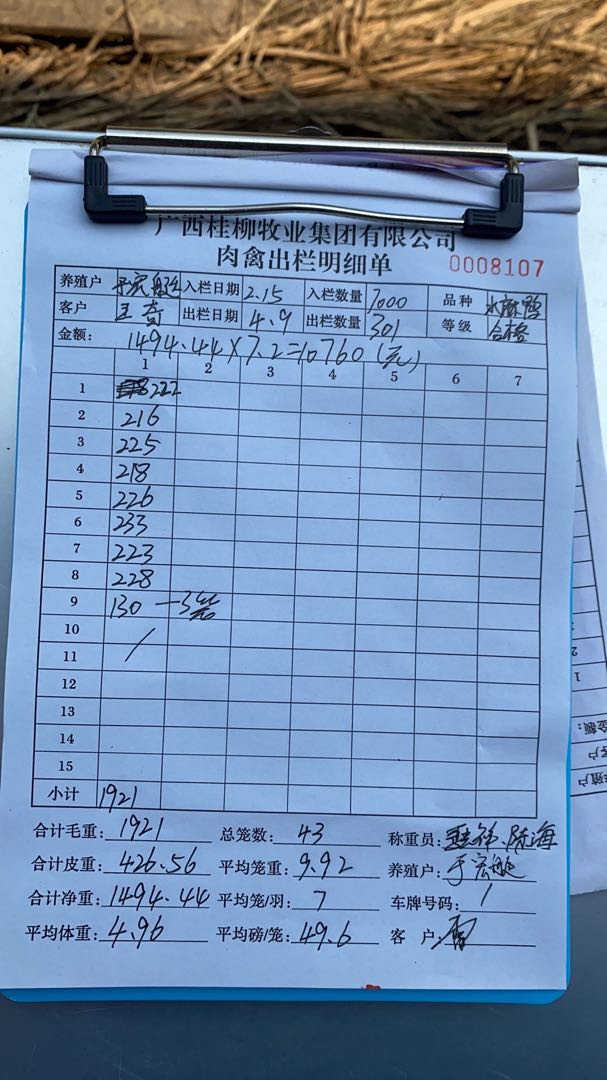 广西桂柳牧业集团有限公司
肉禽出栏明细单 0008107
养殖户 于宏艇 入栏日期 2.15 入栏数量 7000 品种
客户 王奇 出栏日期 4.9 出栏数量 301 等级 合格
金额: 1494.44×7.2=10760(元)
1 2 3 4 5 6 7
1 222
2 216
3 225
4 218
5 226
6 233
7 223
8 228
9 130 —3笼
10 /
11
12
13
14
15
小计 1921
合计毛重: 1921 总笼数: 43 称重员: 祥、陈海
合计皮重: 426.56 平均笼重: 9.92 养殖户: 于宏艇
合计净重: 1494.44 平均笼/羽: 7 车牌号码: /
平均体重: 4.96 平均磅/笼: 49.6 客 户: